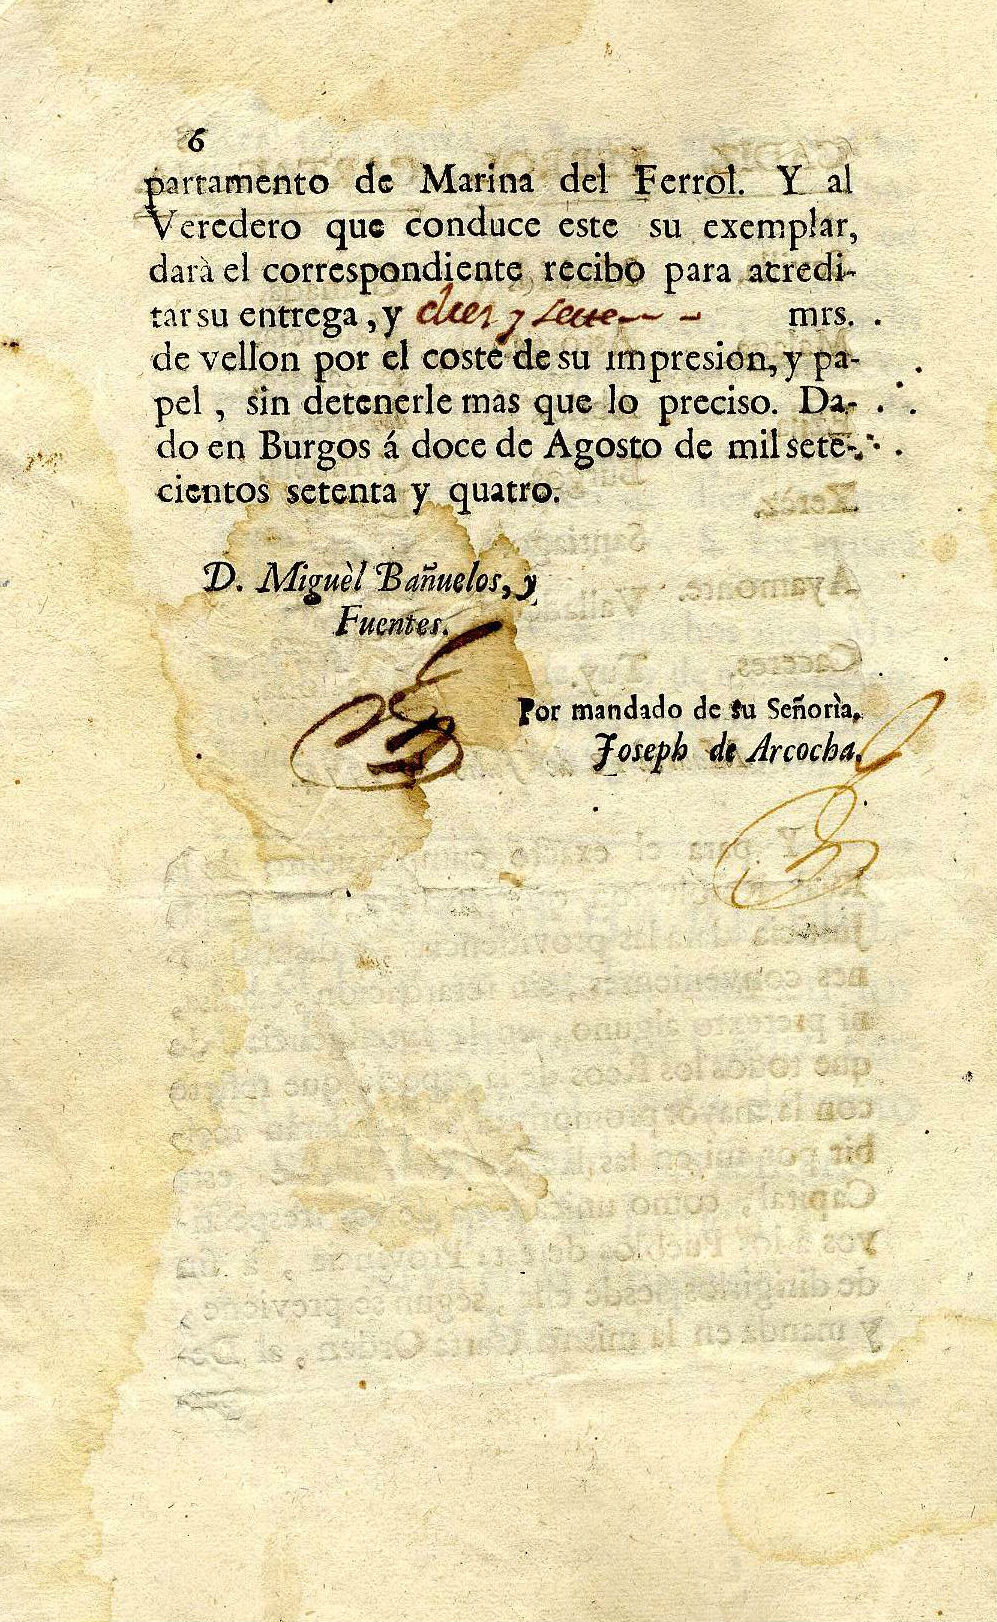 6
partamento de Marina del Ferrol. Y al
Veredero que conduce este su exemplar,
darà el correspondiente recibo para acredi-
tar su entrega, y diez y siete mrs.
de vellon por el coste de su impresion, y pa-
pel, sin detenerle mas que lo preciso. Da-
do en Burgos á doce de Agosto de mil sete-
cientos setenta y quatro.
D. Miguèl Bañuelos, y
Fuentes.
Por mandado de su Señorìa.
Joseph de Arcocha.